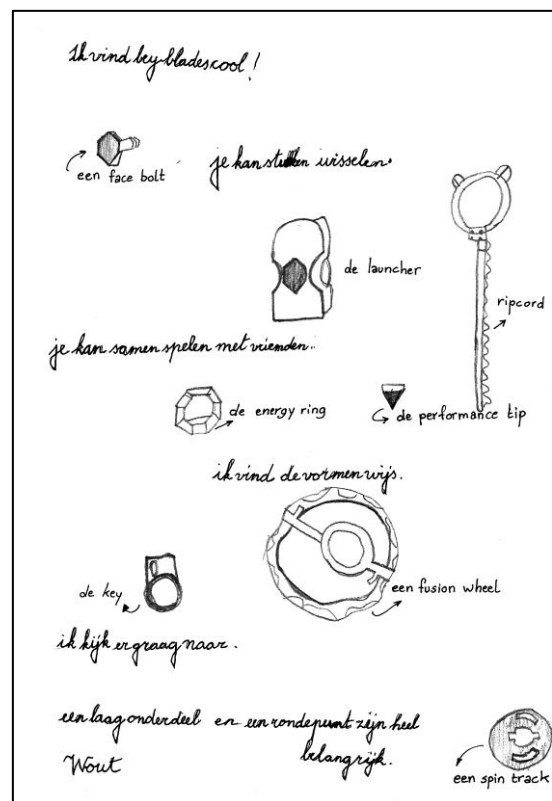 Ik vind bey-blades cool!
een face bolt
je kan stukken wisselen.
de launcher
ripcord
je kan samen spelen met vrienden.
de energy ring
de performance tip
ik vind de vormen wijs.
de key
een fusion wheel
ik kijk er graag naar.
een laag onderdeel en een ronde punt zijn heel
belangrijk.
Wout
een spin track